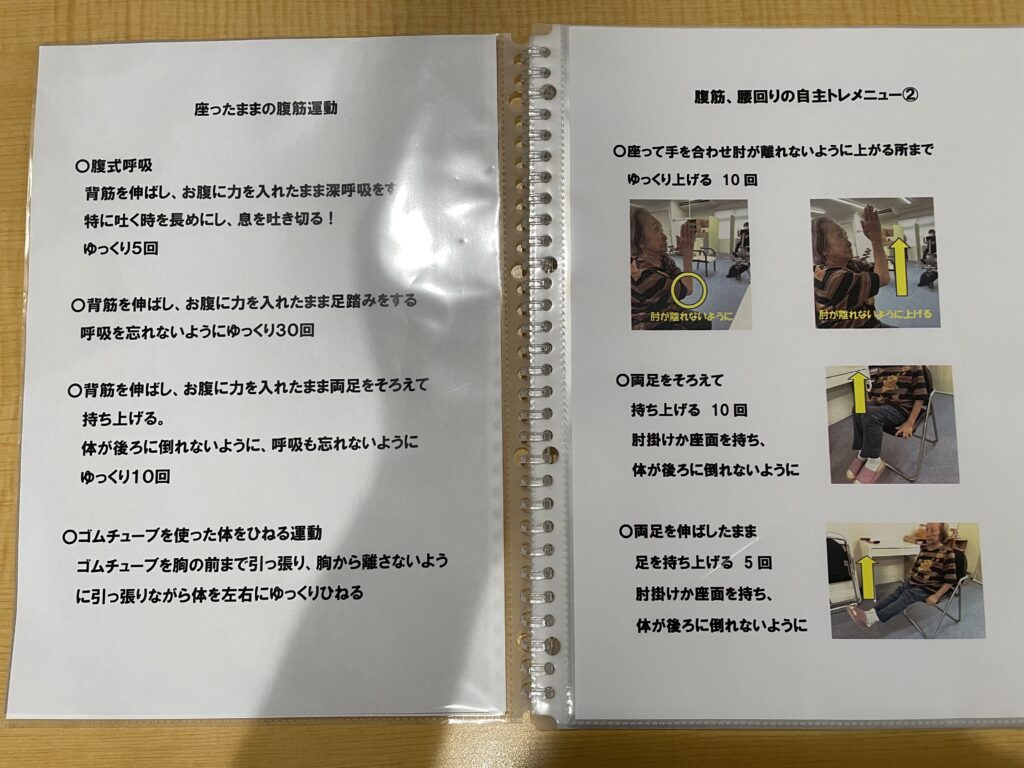 座ったままの腹筋運動
〇腹式呼吸
背筋を伸ばし、お腹に力を入れたまま深呼吸をす
特に吐く時を長めにし、息を吐き切る！
ゆっくり5回
〇背筋を伸ばし、お腹に力を入れたまま足踏みをする
呼吸を忘れないようにゆっくり30回
〇背筋を伸ばし、お腹に力を入れたまま両足をそろえて
持ち上げる。
体が後ろに倒れないように、呼吸も忘れないように
ゆっくり10回
〇ゴムチューブを使った体をひねる運動
ゴムチューブを胸の前まで引っ張り、胸から離さないよう
に引っ張りながら体を左右にゆっくりひねる
腹筋、腰回りの自主トレメニュー②
〇座って手を合わせ肘が離れないように上がる所まで
ゆっくり上げる 10回
肘が離れないように
肘が離れないように上げる
〇両足をそろえて
持ち上げる 10回
肘掛けか座面を持ち、
体が後ろに倒れないように
〇両足を伸ばしたまま
足を持ち上げる 5回
肘掛けか座面を持ち、
体が後ろに倒れないように